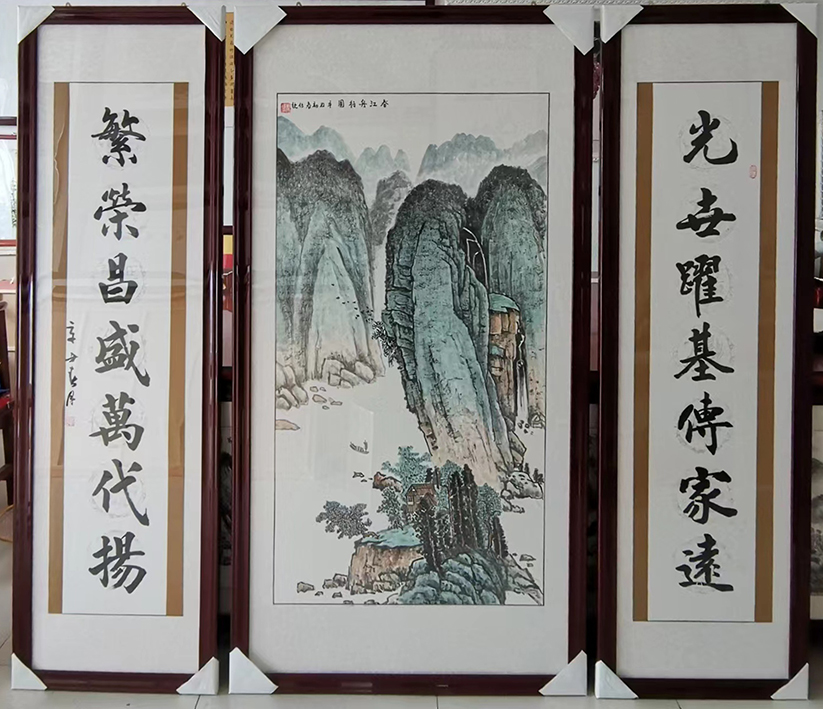 光世躍基傳家遠
春江舟行圖
繁榮昌盛萬代揚